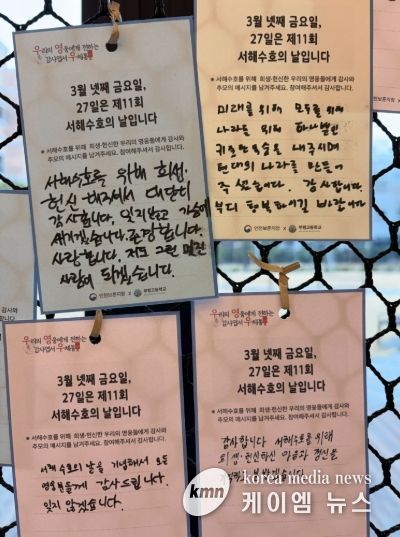 우리의 영웅에게 전하는
감사엽서 우체통
3월 넷째 금요일,
27일은 제11회
서해수호의 날입니다
● 서해수호를 위해 희생·헌신한 우리의 영웅들에게 감사와
추모의 메시지를 남겨주세요. 참여해주셔서 감사합니다.
서해수호를 위해 희생
헌신 해주셔서 대단히
감사합니다. 잊지않고 가슴에
새기겠습니다. 존경합니다.
사랑합니다. 저도 그런 멋진
사람이 되겠습니다.
인천보훈지청 X 부평고등학교
3월 넷째 금요일,
27일은 제11회
서해수호의 날입니다
● 서해수호를 위해 희생·헌신한 우리의 영웅들에게 감사와
추모의 메시지를 남겨주세요. 참여해주셔서 감사합니다.
미래를 위해 모두를 위해
나라를 위해 하나뿐인
귀중한 목숨을 내주시며
현대의 나라를 만들어
주셨습니다. 감사합니다.
부디 행복하시길 바랍니다
인천보훈지청 X 부평고등학교
우리의 영웅에게 전하는
감사엽서 우체통
3월 넷째 금요일,
27일은 제11회
서해수호의 날입니다
● 서해수호를 위해 희생·헌신한 우리의 영웅들에게 감사와
추모의 메시지를 남겨주세요. 참여해주셔서 감사합니다.
서해 수호의 날을 기념해서 모든
영웅분들께 감사드립니다.
잊지 않겠습니다.
우리의 영웅에게 전하는
감사엽서 우체통
3월 넷째 금요일,
27일은 제11회
서해수호의 날입니다
● 서해수호를 위해 희생·헌신한 우리의 영웅들에게 감사와
추모의 메시지를 남겨주세요. 참여해주셔서 감사합니다.
감사합니다 서해수호를 위해
희생·헌신하신 마음과 정신을
kmn korea media news
케이엠 뉴스